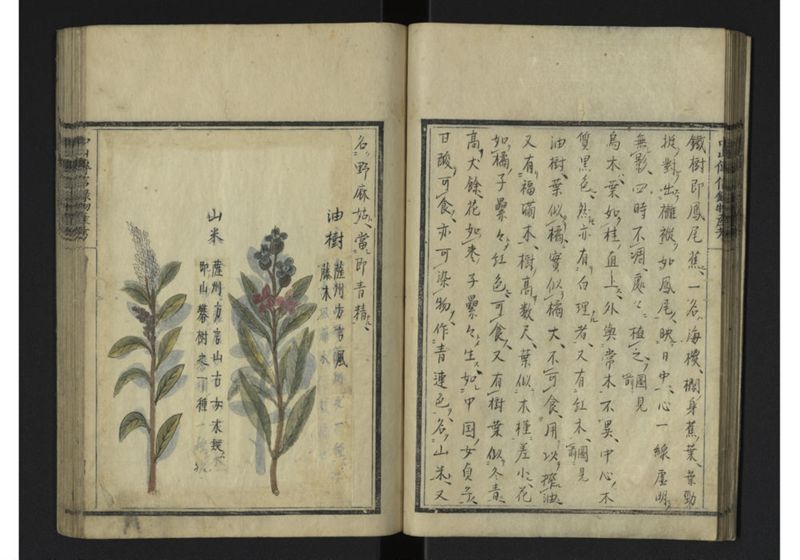 鐵樹即鳳尾蕉、一名海椶櫚、身蕉葉、葉勁
挺對出襳褷、如鳳尾、映日中、心一線虛明、
無影、四時不凋、處々植之、圖見前
烏木、葉如桂、直上、外與常木不異、中心木
質黑色、然亦有白理者、又有紅木、圖見前
油樹、葉似橘、實似橘大、不可食、用以搾油
又有福滿木、樹高数尺、葉似木槿差小、花
如橘、子纍々、紅色可食、又有樹葉似冬青、
高丈餘、花如枣子纍々、生如中国女貞子、
甘酸可食、亦可染物、作青蓮色、名山米、又
名野麻姑、當即青精、
油樹 薩州方言風
藤木
山米 薩州方言山古
即山礬樹之一種